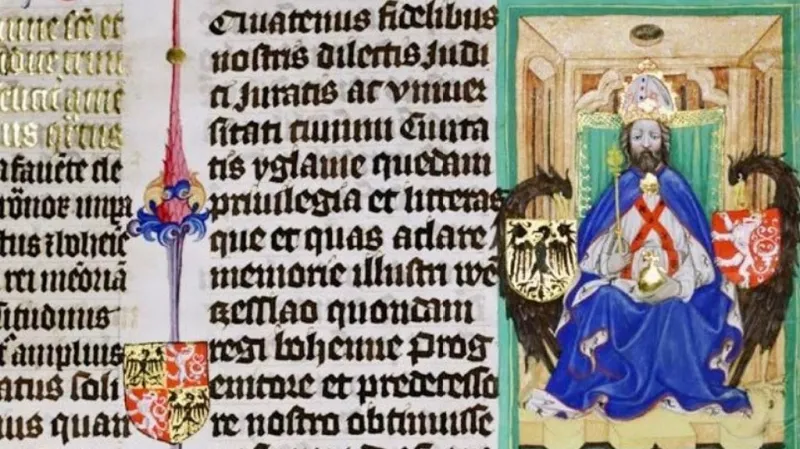 sce et
a fauēte cle
rōnor impa
tus z bohēie
rei mēoriā
amplius
atus
quan
Quatenus fidelibus
nostris dilectis Judi
ci Juratis ac vniuer
sitati ciuium Ciuita
tis yglauie quedam
priuilegia et litteras
que et quas aclare
memorie illustri we
zesslao quondam
regi bohemie Prog
enitore et predecesso
re nostro obtinuisse